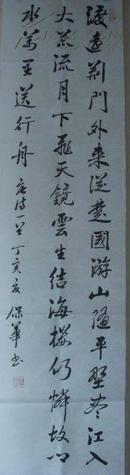 渡遠荊門外來從楚國游山隨平野尽江入
大荒流月下飛天鏡雲生結海楼仍憐故乡
水萬里送行舟 唐诗一首 丁亥夏 保華书